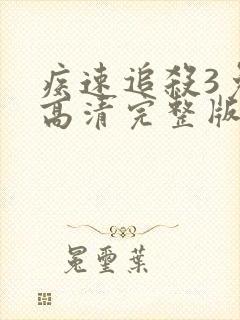 疾速追殺3
高清完整版
冕璽葉